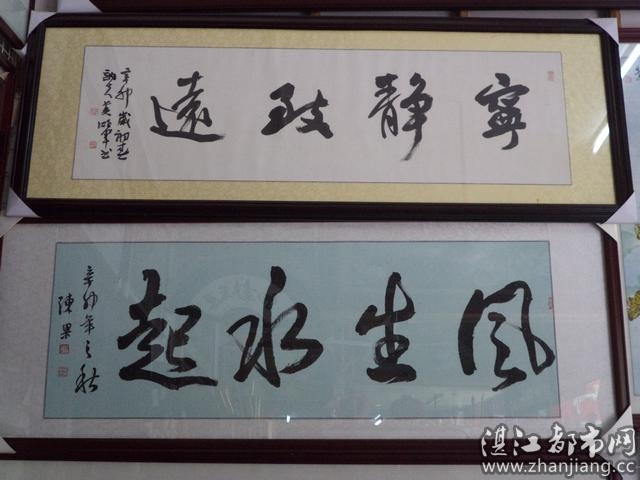 寧靜致遠
辛卯歲初春
風生水起
辛卯年之秋
陳果
湛江都市网
www.zhanjiang.cc